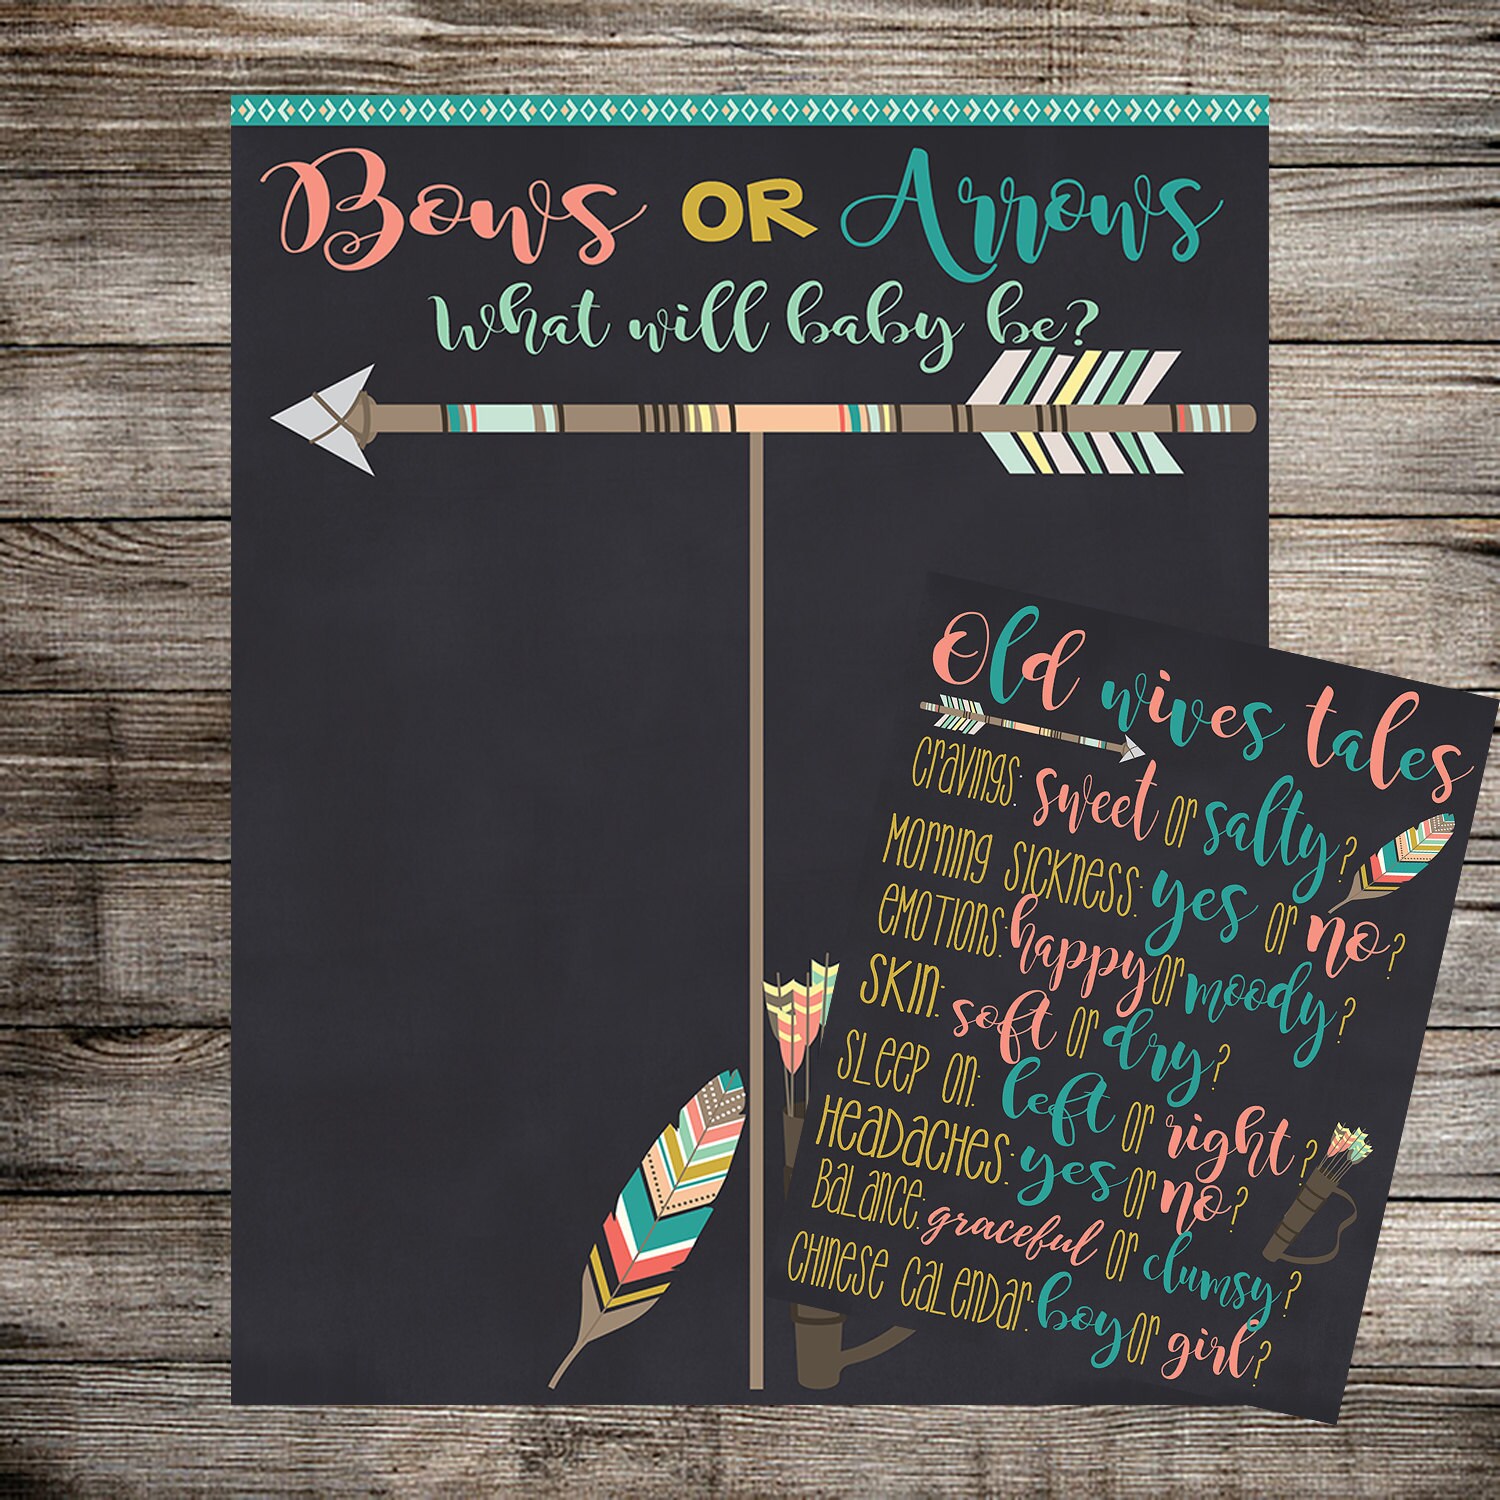 Bows OR Arrows
What will baby be?
Old wives tales
Cravings: sweet or salty?
Morning sickness: yes or no?
Emotions: happy or moody?
Skin: soft or dry?
Sleep on: left or right?
Headaches: yes or no?
Balance: graceful or clumsy?
Chinese Calendar: boy or girl?